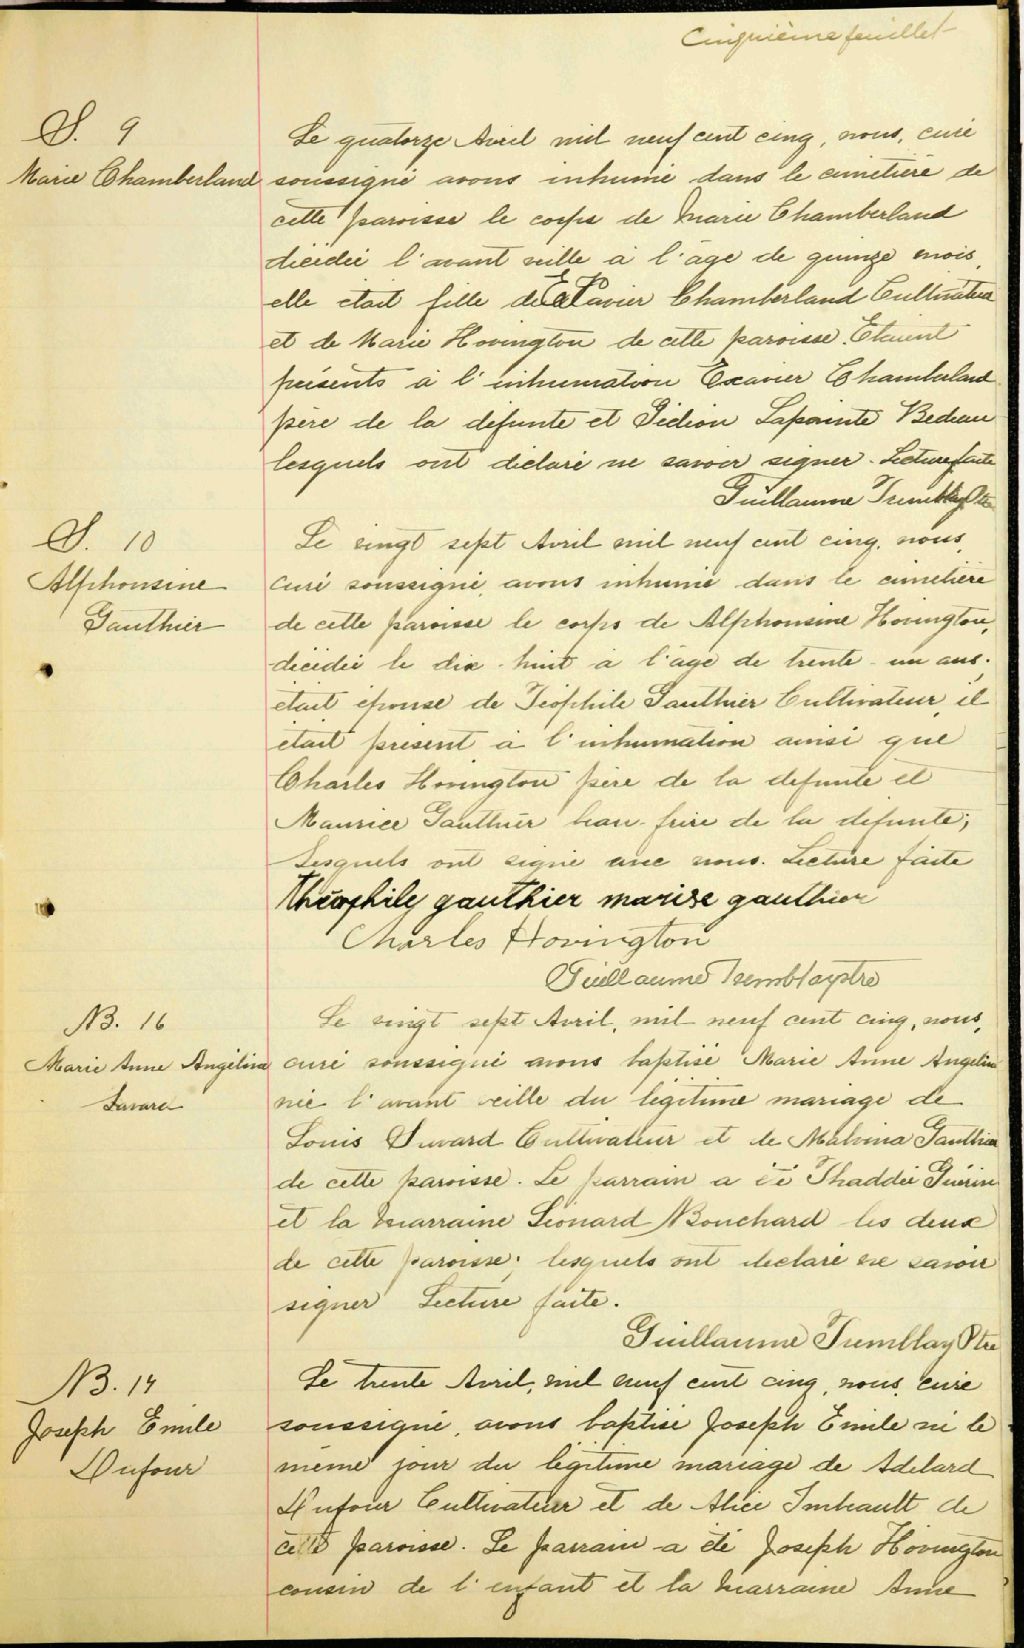 Cinquième feuillet
S. 9
Marie Chamberland
Le quatorze Avril mil neuf cent cinq, nous, curé
soussigné avons inhumé dans le cimetière de
cette paroisse le corps de Marie Chamberland
décédée l'avant veille à l'âge de quinze mois,
elle était fille de Exavier Chamberland Cultivateur
et de Marie Hovington de cette paroisse. Etaient
présents à l'inhumation Exavier Chamberland
père de la défunte et Gédéon Lapointe Bedeau
lesquels ont déclaré ne savoir signer. Lecture faite
Guillaume Tremblay Ptre
S. 10
Alphonsine
Gauthier
Le vingt sept Avril mil neuf cent cinq, nous,
curé soussigné, avons inhumé dans le cimetière
de cette paroisse le corps de Alphonsine Hovington,
décédée le dix-huit à l'âge de trente-un ans.
était épouse de Téophile Gauthier Cultivateur, il
était présent à l'inhumation ainsi que
Charles Hovington père de la défunte et
Maurice Gauthier beau-frère de la défunte;
Lesquels ont signé avec nous. Lecture faite
théophile gauthier marise gauthier
Charles Hovington
Guillaume Tremblay ptre
B. 16
Marie Anne Angélina
Savard
Le vingt sept Avril, mil neuf cent cinq, nous,
curé soussigné avons baptisé Marie Anne Angelina
née l'avant veille du légitime mariage de
Louis Savard Cultivateur et de Malvina Gauthier
de cette paroisse. Le parrain a été Thaddée Guérin
et la marraine Léonard Bouchard les deux
de cette paroisse; lesquels ont déclaré ne savoir
signer Lecture faite.
Guillaume Tremblay Ptre
B. 17
Joseph Emile
Dufour
Le trente Avril, mil neuf cent cinq, nous, curé
soussigné, avons baptisé Joseph Emile né le
même jour du légitime mariage de Adélard
Dufour Cultivateur et de Alice Imbeault de
cette paroisse. Le parrain a été Joseph Hovington
cousin de l'enfant et la marraine Anne